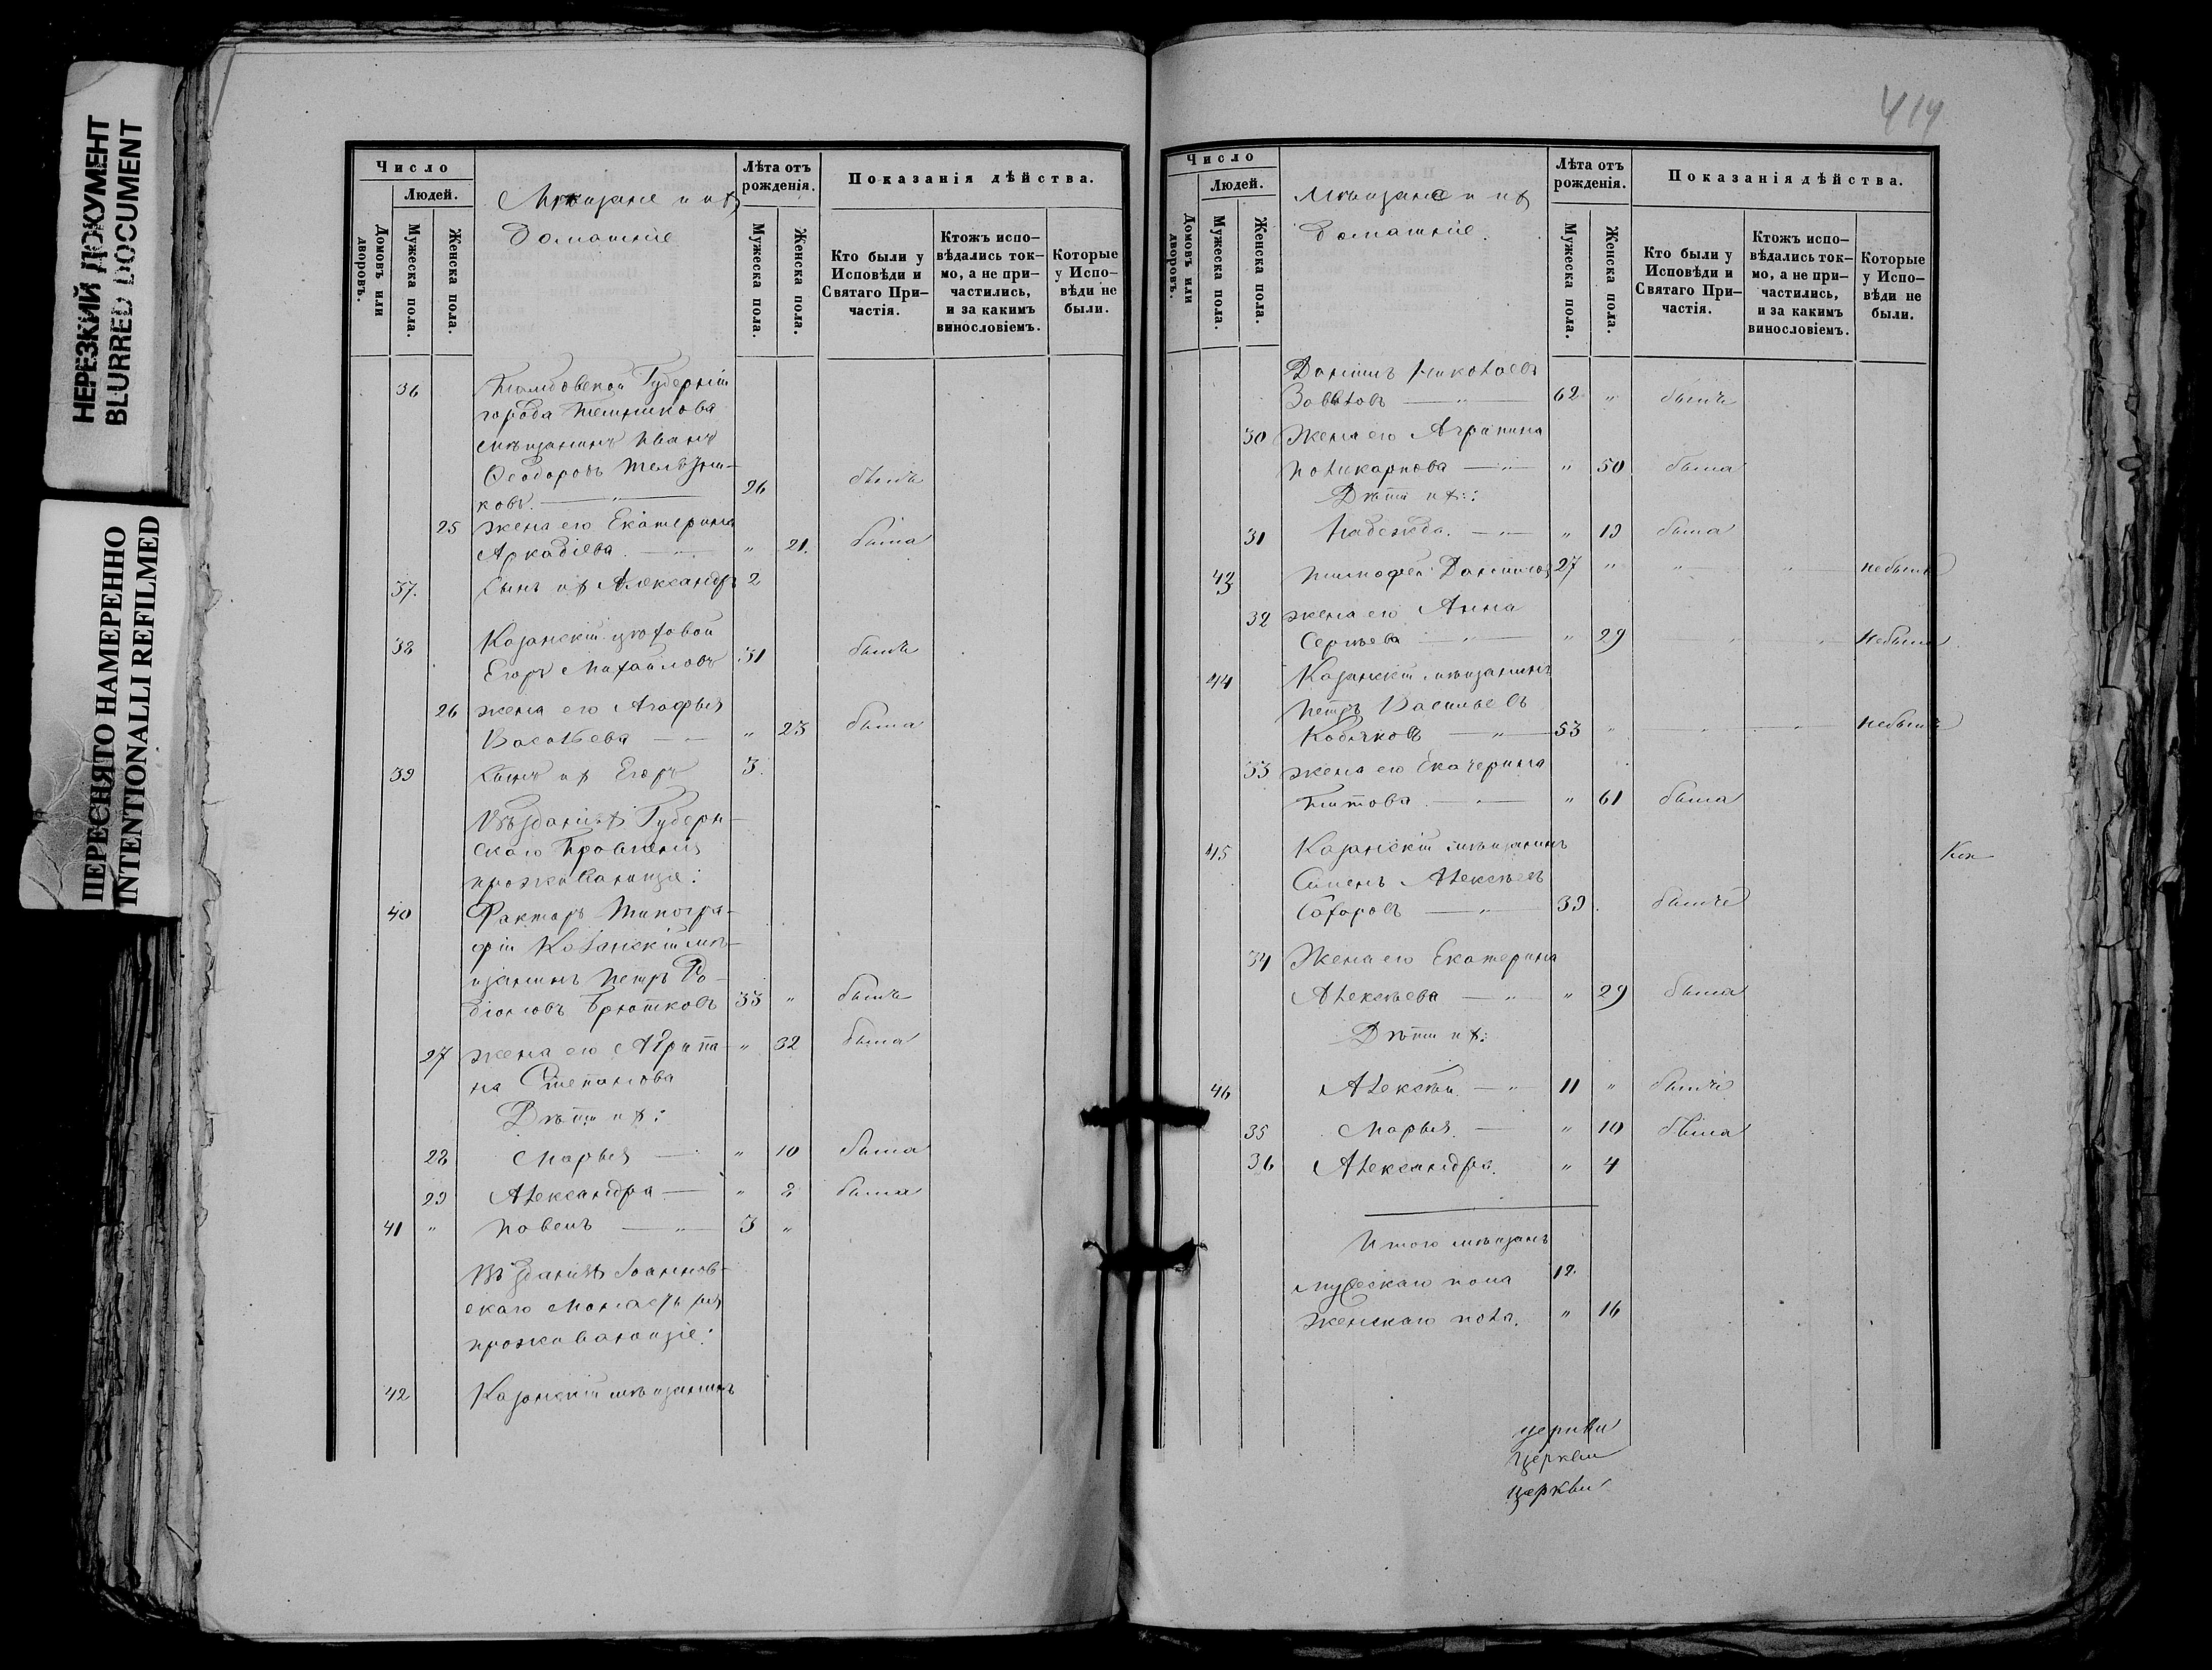 НЕРЕЗКИЙ ДОКУМЕНТ
BLURRED DOCUMENT
ПЕРЕСНЯТО НАМЕРЕННО
INTENTIONALLI REFILMED
Число
Людей.
Домовъ или дворовъ.
Мужеска пола.
Женска пола.
Мѣщане и их
домашніе
Лѣта отъ рожденія.
Мужеска пола.
Женска пола.
Показанія дѣйства.
Кто были у Исповѣди и Святаго Причастія.
Ктожъ исповѣдались токмо, а не причастились, и за какимъ винословіемъ.
Которые у Исповѣди не были.
36 Тамбовской Губерніи
города Темникова
мѣщанинъ Иванъ
Ѳеодоровъ
ковъ. — " — 26 былъ
25 жена его Екатерина
Аркадіева. — " 21. была
37. Сынъ их Александръ 2
38 Казанскій цѣховой
Егоръ Михайловъ 31 былъ
26 жена его Агафья
Васильева — " 23 была
39 Сынъ их Егоръ 3.
Въ зданіях Губерн-
скаго Правленія
проживающіе:
40 Факторъ Типогра-
фіи Казанскій мѣ-
щанинъ Петръ Ро-
діоновъ Брютковъ 33 " былъ
27 жена его Агрипи- " 32 была
на Степанова
Дѣти их:
28 Марья — " 10 была
29 Александра — " 8 была
41 " Павелъ — " — 3 "
Въ зданіях Іоаннов-
скаго Монастыря
проживающіе:
42 Казанскій мѣщанинъ
414
Число
Людей.
Домовъ или дворовъ.
Мужеска пола.
Женска пола.
Мѣщане и их
домашніе.
Лѣта отъ рожденія.
Мужеска пола.
Женска пола.
Показанія дѣйства.
Кто были у Исповѣди и Святаго Причастія.
Ктожъ исповѣдались токмо, а не причастились, и за какимъ винословіемъ.
Которые у Исповѣди не были.
Даниилъ Николаевъ
— " — 62 " былъ
30 Жена его Аграпина
Поликарпова — " — " 50 была
Дѣти их:
31 Надежда. — " — " 19 была
43 Тимофей Данилов 27 " " " небылъ
32 жена его Анна
Сергѣева — " — " 29 " " Небыла
44 Казанскій мѣщанинъ
Петръ Васильевъ
Кобяковъ — " — 53 " " " небылъ
33 жена его Екатерина
Титова — " — " 61 была
45 Казанскій мѣщанинъ
Семенъ Алексѣевъ
Сахаровъ — " — 39 былъ
34 Жена его Екатерина
Алексѣева — " — " 29 была
Дѣти их:
46 Алексѣй. — " 11 " былъ
35 Марья. — " 10 была
36 Александра. " 4
Итого мѣщанъ
мужескаго пола 12.
Женскаго пола. " 16
церкви
Церкви
церкви